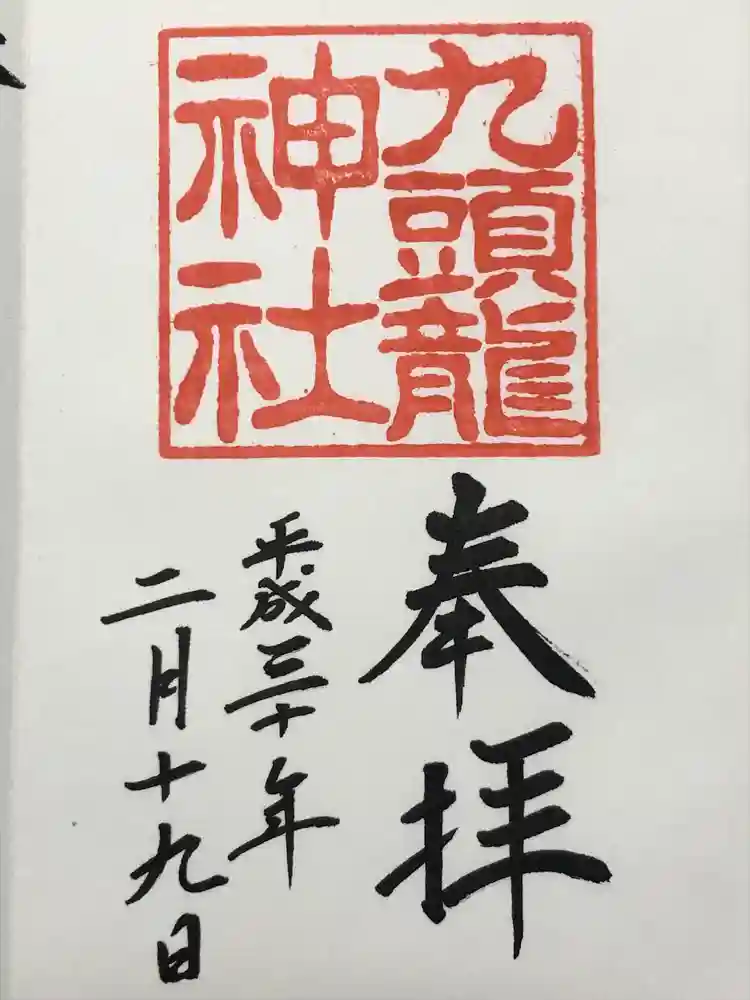 九頭龍
神社
奉拝
平成三十年
二月十九日